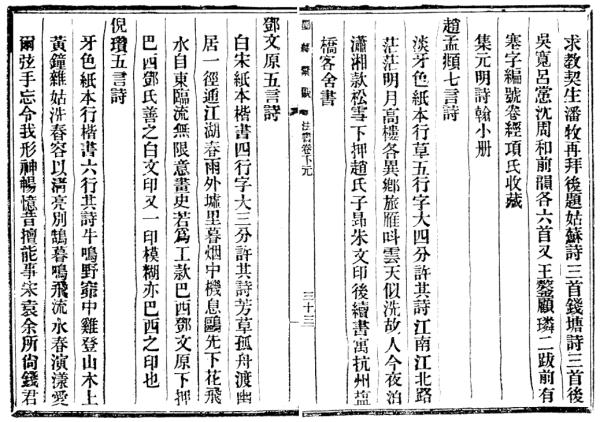 求教契生潘牧再拜後題姑蘇詩三首錢塘詩三首後
吳寬呂㦂沈周和前韻各六首又王鏊顧璘二跋前有
塞字編號卷經項氏收藏
集元明詩翰小册
趙孟頫七言詩
淡牙色紙本行草五行字大四分許其詩江南江北路
茫茫明月高樓各異鄉旅雁呌雲天似洗故人今夜泊
瀟湘款松雪下押趙氏子昻朱文印後續書寓杭州鹽
橋客舍書
法書卷下元
三十三
鄧文原五言詩
白宋紙本楷書四行字大三分許其詩芳草孤舟渡幽
居一徑通江湖春雨外墟里暮烟中機息鷗先下花飛
水自東臨流無限意畫史若爲工款巴西鄧文原下押
巴西鄧氏善之白文印又一印模糊亦巴西之印也
倪瓚五言詩
牙色紙本行楷書六行其詩牛鳴野窌中雞登山木上
黃鐘雜姑洗春容以淸亮別鵠暮鳴飛流水春演漾愛
爾弦手忘令我形神暢憶昔擅能事宋袁余所尙錢君